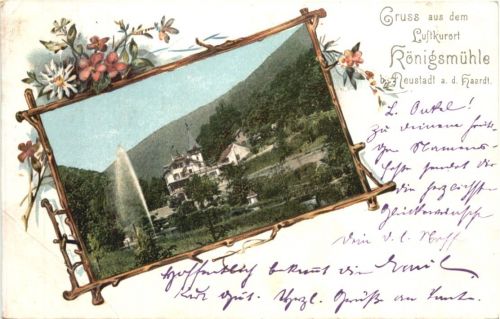 Gruss aus dem
Luftkurort
Königsmühle
b. Neustadt a. d. Haardt.
L. Onkel!
Zu deinem heuti-
gen Namens-
feste sendet dir
die herzlichst
Glückwünsche
Dein d. l. Neff
Hoffentlich bekommt die
Kur gut. Herzl. Grüße an Tante.